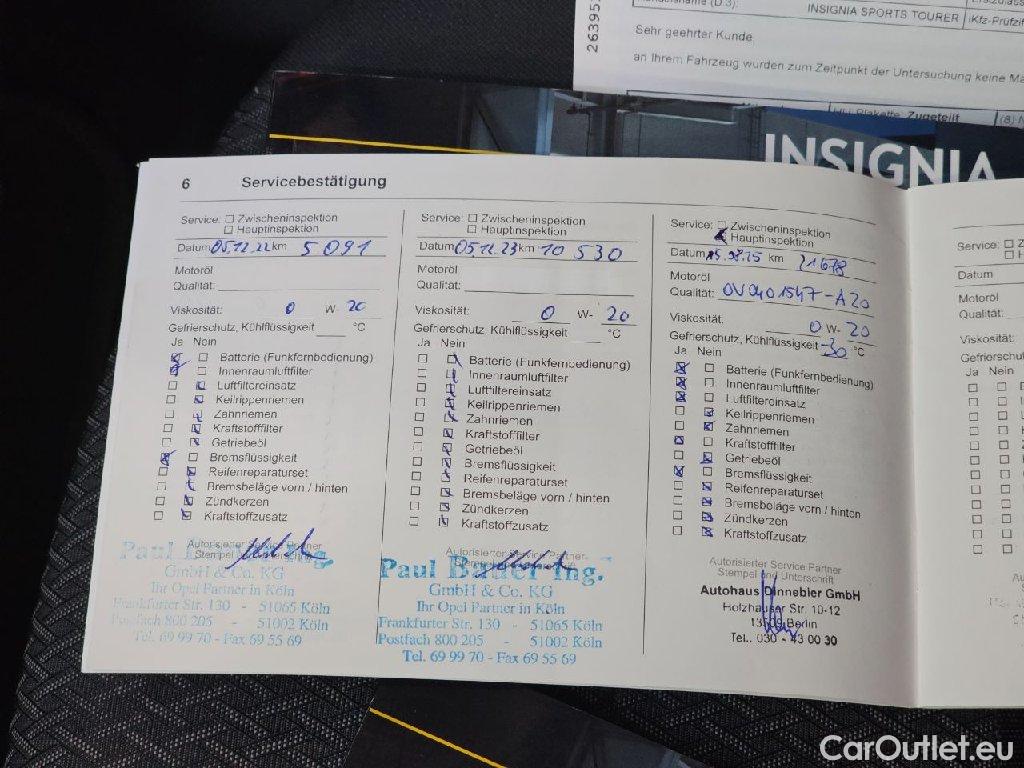 263953
INSIGNIA SPORTS TOURER
Sehr geehrter Kunde
an Ihrem Fahrzeug wurden zum Zeitpunkt der Untersuchung keine
HU-Plakette Zugeteilt
INSIGNIA
6 Servicebestätigung
Service: Zwischeninspektion
Hauptinspektion
Datum 05.12.22 km 5 091
Motoröl
Qualität:
Viskosität: 0 W- 20
Gefrierschutz, Kühlflüssigkeit °C
Ja Nein
Batterie (Funkfernbedienung)
Innenraumluftfilter
Luftfiltereinsatz
Keilrippenriemen
Zahnriemen
Kraftstofffilter
Getriebeöl
Bremsflüssigkeit
Reifenreparaturset
Bremsbeläge vorn / hinten
Zündkerzen
Kraftstoffzusatz
Autorisierter Service Partner
Stempel
Paul Ing.
GmbH & Co. KG
Ihr Opel Partner in Köln
Frankfurter Str. 130 - 51065 Köln
Postfach 800 205 - 51002 Köln
Tel. 69 99 70 - Fax 69 55 69
Service: Zwischeninspektion
Hauptinspektion
Datum 05.12.23 km 10 530
Motoröl
Qualität:
Viskosität: 0 W- 20
Gefrierschutz, Kühlflüssigkeit °C
Ja Nein
Batterie (Funkfernbedienung)
Innenraumluftfilter
Luftfiltereinsatz
Keilrippenriemen
Zahnriemen
Kraftstofffilter
Getriebeöl
Bremsflüssigkeit
Reifenreparaturset
Bremsbeläge vorn / hinten
Zündkerzen
Kraftstoffzusatz
Autorisierter Service Partner
Paul Bauer Ing.
GmbH & Co. KG
Ihr Opel Partner in Köln
Frankfurter Str. 130 - 51065 Köln
Postfach 800 205 - 51002 Köln
Tel. 69 99 70 - Fax 69 55 69
Service: Zwischeninspektion
Hauptinspektion
Datum km 21 678
Motoröl
Qualität: OV0401547-A20
Viskosität: 0 W- 20
Gefrierschutz, Kühlflüssigkeit -30 °C
Ja Nein
Batterie (Funkfernbedienung)
Innenraumluftfilter
Luftfiltereinsatz
Keilrippenriemen
Zahnriemen
Kraftstofffilter
Getriebeöl
Bremsflüssigkeit
Reifenreparaturset
Bremsbeläge vorn / hinten
Zündkerzen
Kraftstoffzusatz
Autorisierter Service Partner
Stempel und Unterschrift
Autohaus Dinnebier GmbH
Holzhauser Str. 10-12
13509 Berlin
Tel.: 030 - 43 00 30
Service:
Datum
Motoröl
Qualität:
Viskosität:
Ja Nein
CarOutlet.eu